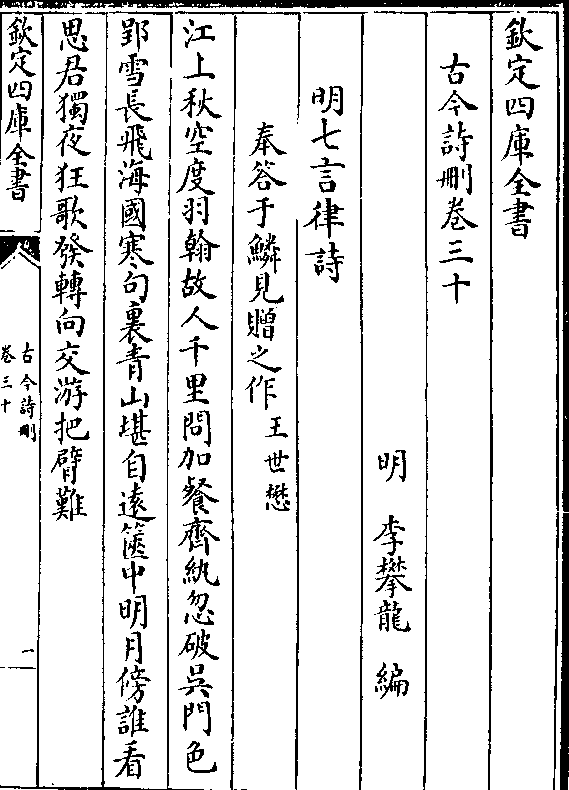 欽定四庫全書
古今詩刪卷三十
明 李攀龍 編
明七言律詩
奉答于鱗見贈之作 王世懋
江上秋空度羽翰故人千里問加餐齊紈忽破吳門色
郢雪長飛海國寒句裏青山堪自遠篋中明月傍誰看
思君獨夜狂歌發轉向交游把臂難
欽定四庫全書
古今詩刪
卷三十
一